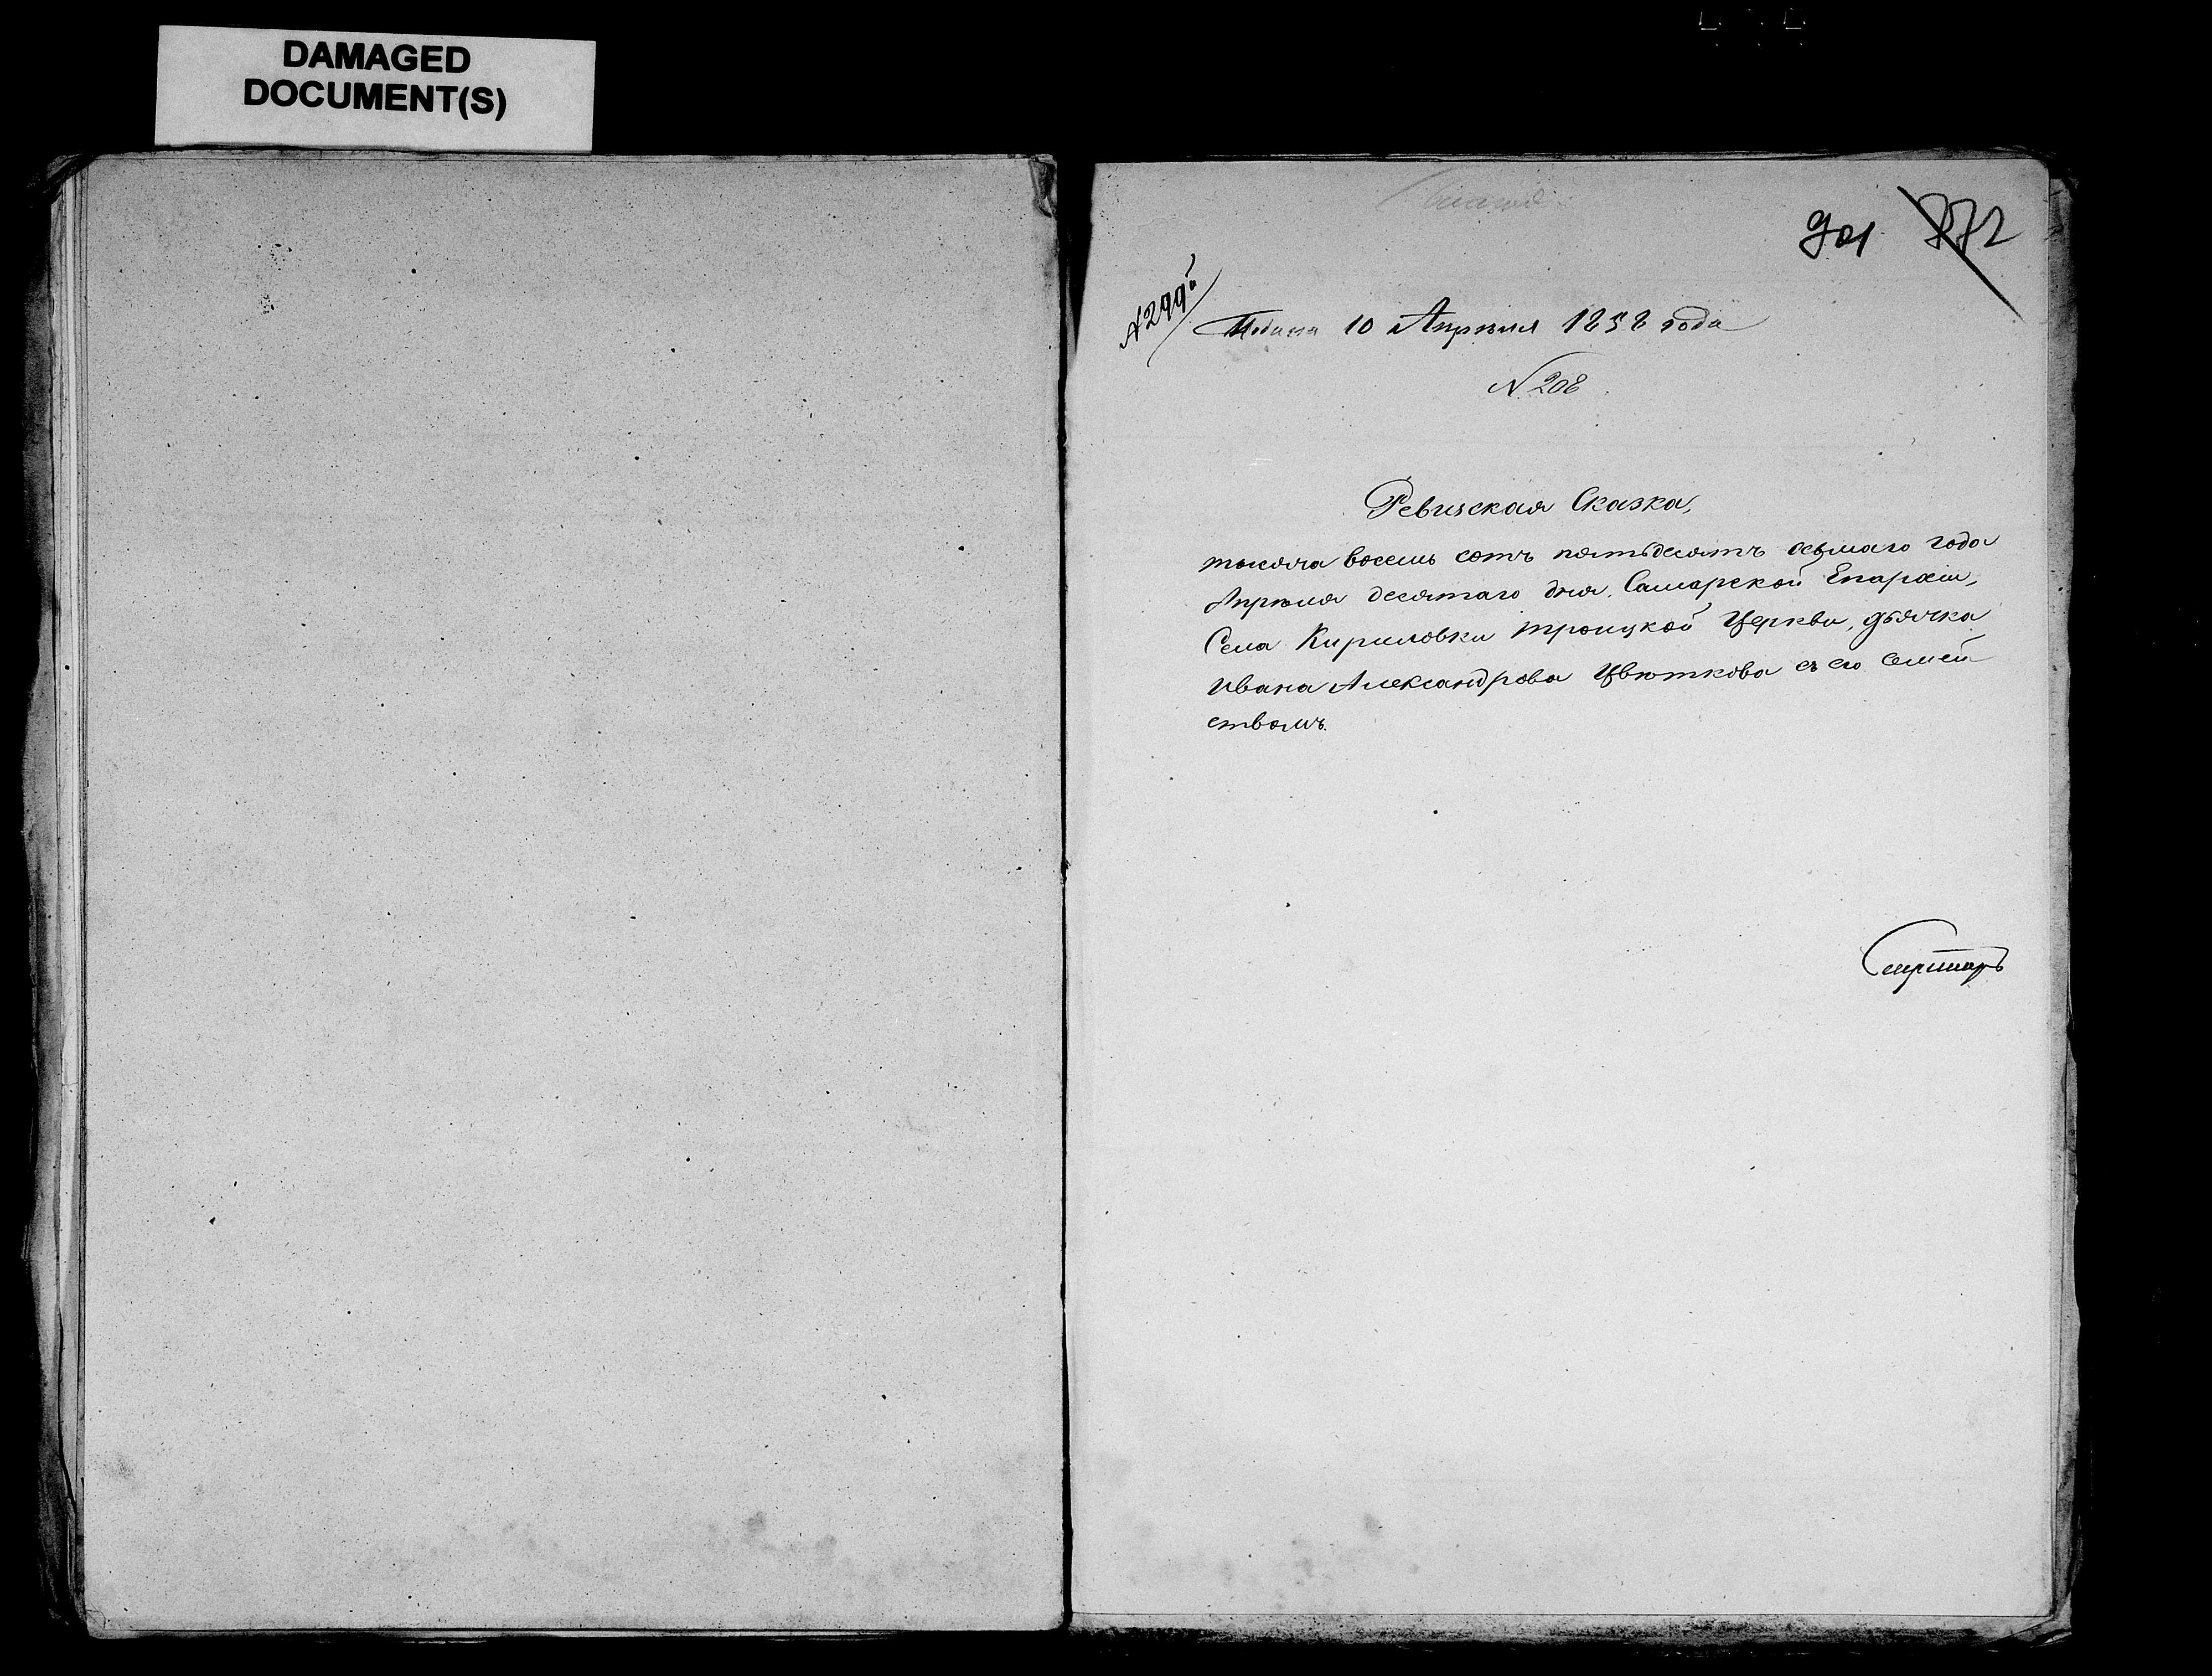 DAMAGED
DOCUMENT(S)
901 872
№ 299й
Подана 10 Апрѣля 1858 года
№ 208.
Ревизская Сказка,
тысяча восемь сотъ пятьдесятъ осьмаго года
Апрѣля десятаго дня. Самарской Епархіи,
Села Кириловки Троицкой Церкви, дьячка
Ивана Александрова Цвѣткова съ его семей
ствомъ.